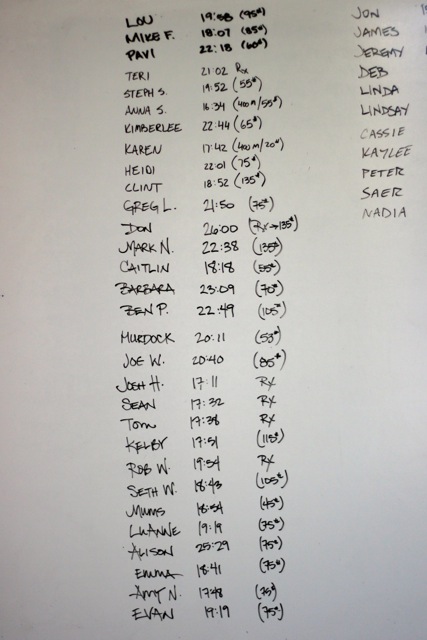 LOU 19:58 (95#)
MIKE F. 18:07 (85#)
PAVI 22:18 (60#)
TERI 21:02 Rx
STEPH S. 19:52 (55#)
ANNA S. 16:34 (400m/55#)
KIMBERLEE 22:44 (65#)
KAREN 17:42 (400m/20#)
HEIDI 22:01 (75#)
CLINT 18:52 (135#)
GREG L. 21:50 (75#)
DON 26:00 (Rx→135#)
MARK N. 22:38 (135#)
CAITLIN 18:18 (55#)
BARBARA 23:09 (70#)
BEN P. 22:49 (105#)
MURDOCK 20:11 (53#)
JOE W. 20:40 (85#)
JOSH H. 17:11 RX
SEAN 17:32 RX
TOM 17:38 RX
KELBY 17:51 (115#)
ROB W. 19:54 RX
SETH W. 18:43 (105#)
MUMS 18:54 (45#)
LUANNE 19:19 (35#)
ALISON 25:29 (75#)
EMMA 18:41 (75#)
AMY N. 17:48 (75#)
EVAN 19:19 (75#)
JON
JAMES
JEREMY
DEB
LINDA
LINDSAY
CASSIE
KAYLEE
PETER
SAER
NADIA